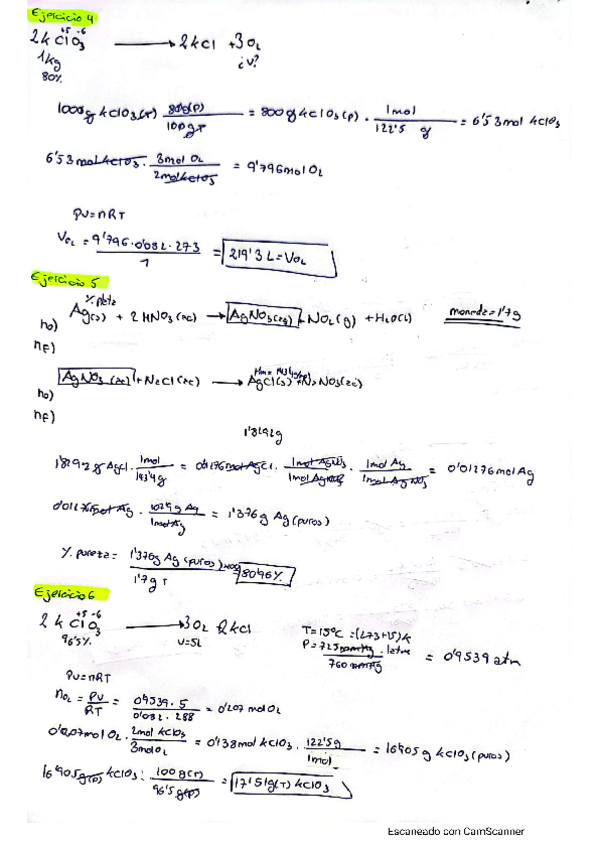 Ejercicio 4
+5 -6
2KClO3 → 2KCl + 3O2
1kg ¿V?
80%
1000g KClO3(T) · 80g(P) / 100gT = 800g KClO3(P) · 1mol / 122'5 g = 6'53mol KClO3
6'53mol KClO3 · 3mol O2 / 2mol KClO3 = 9'796mol O2
PV=nRT
VO2 = 9'796·0'082·273 / 1 = 219'3 L = VO2
Ejercicio 5
Ag(s) + 2HNO3(ac) → AgNO3(aq) + NO2(g) + H2O(l) moneda = 1'7g
no)
nF)
AgNO3(ac) + NaCl(ac) → AgCl(s) + NaNO3(ac)
no)
nF)
1'8292g
1'8292g AgCl · 1mol / 143'4g = 0'01276mol AgCl · 1mol AgNO3 / 1mol AgCl · 1mol Ag / 1mol AgNO3 = 0'01276mol Ag
0'01276mol Ag · 107'9g Ag / 1mol Ag = 1'376g Ag (puros)
% pureza = 1'376g Ag (puros) / 1'7g T ×100 = 80'96%
Ejercicio 6
+5 -6
2KClO3 → 3O2 2KCl
96'5% V=5L
T=15ºC =(273+15)K
P=725mmHg · 1atm / 760mmHg = 0'9539 atm
PV=nRT
nO2 = PV / RT = 0'9539·5 / 0'082·288 = 0'207 mol O2
0'207mol O2 · 2mol KClO3 / 3mol O2 = 0'138mol KClO3 · 122'5g / 1mol = 16'905g KClO3 (puros)
16'905g(P) KClO3 · 100g(T) / 96'5g(P) = 17'51g(T) KClO3
Escaneado con CamScanner